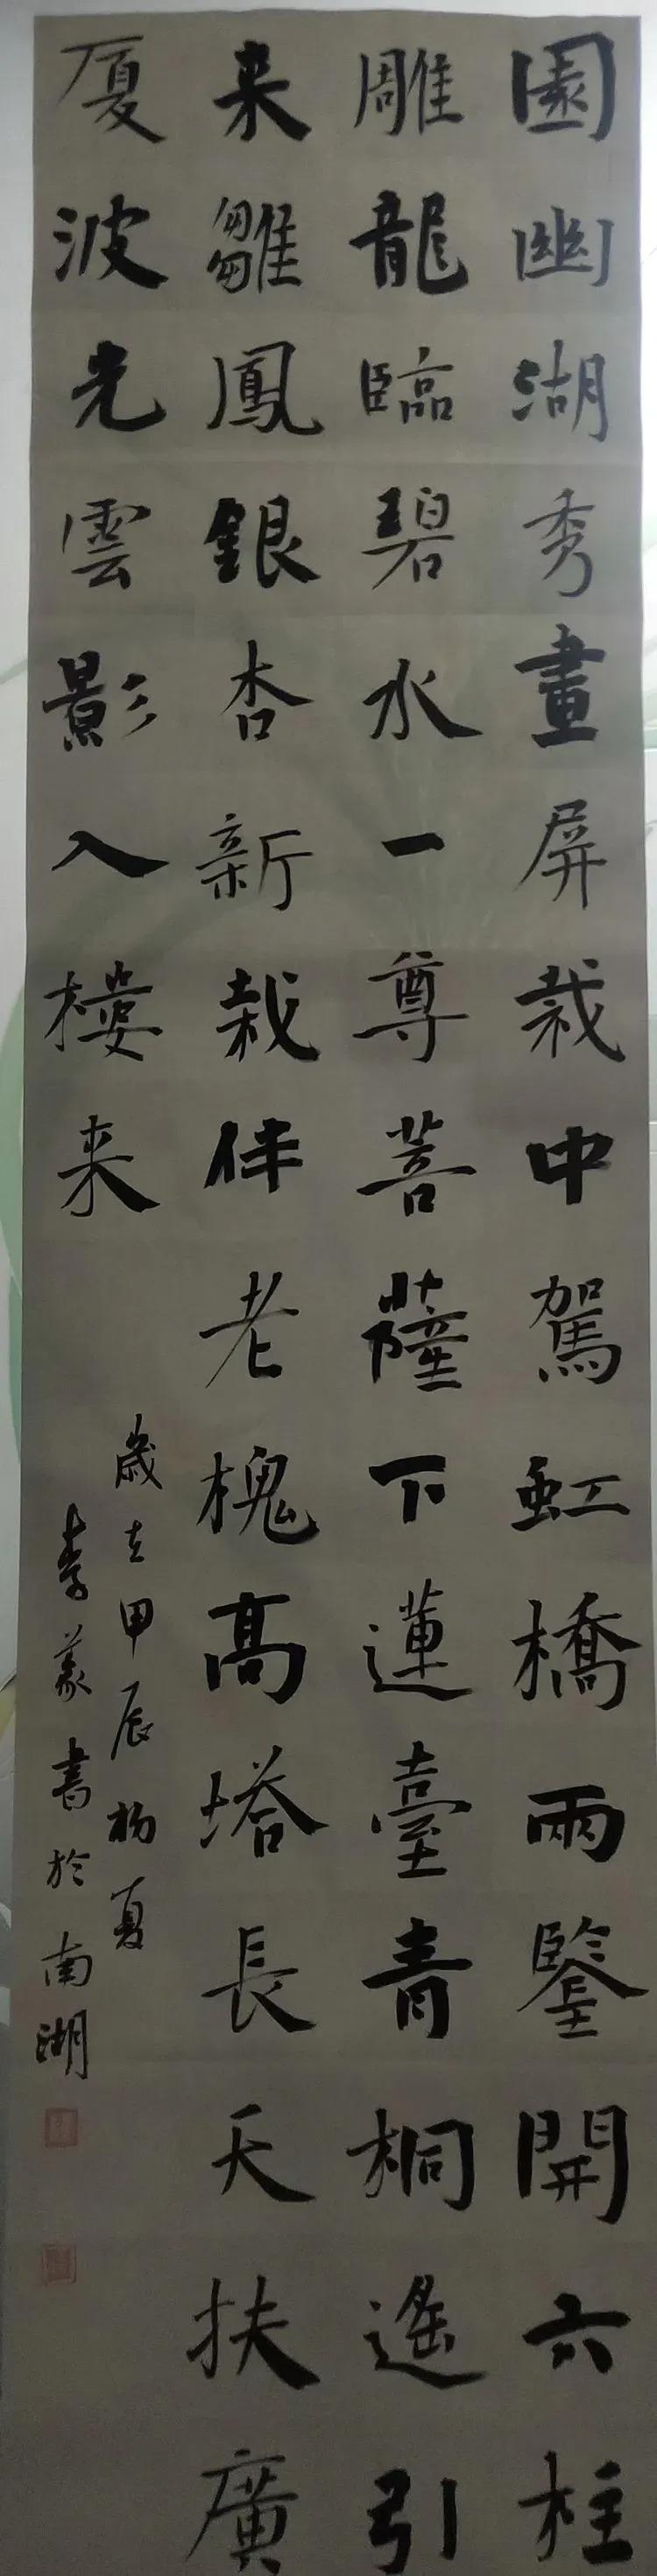 園幽湖秀畫屏栽中駕虹橋兩鑒開六柱
雕龍臨碧水一尊菩薩下蓮臺青桐遙引
来雛鳳銀杏新栽伴老槐高塔長天扶廣
厦波光雲影入樓来
歲在甲辰初夏
李義書於南湖